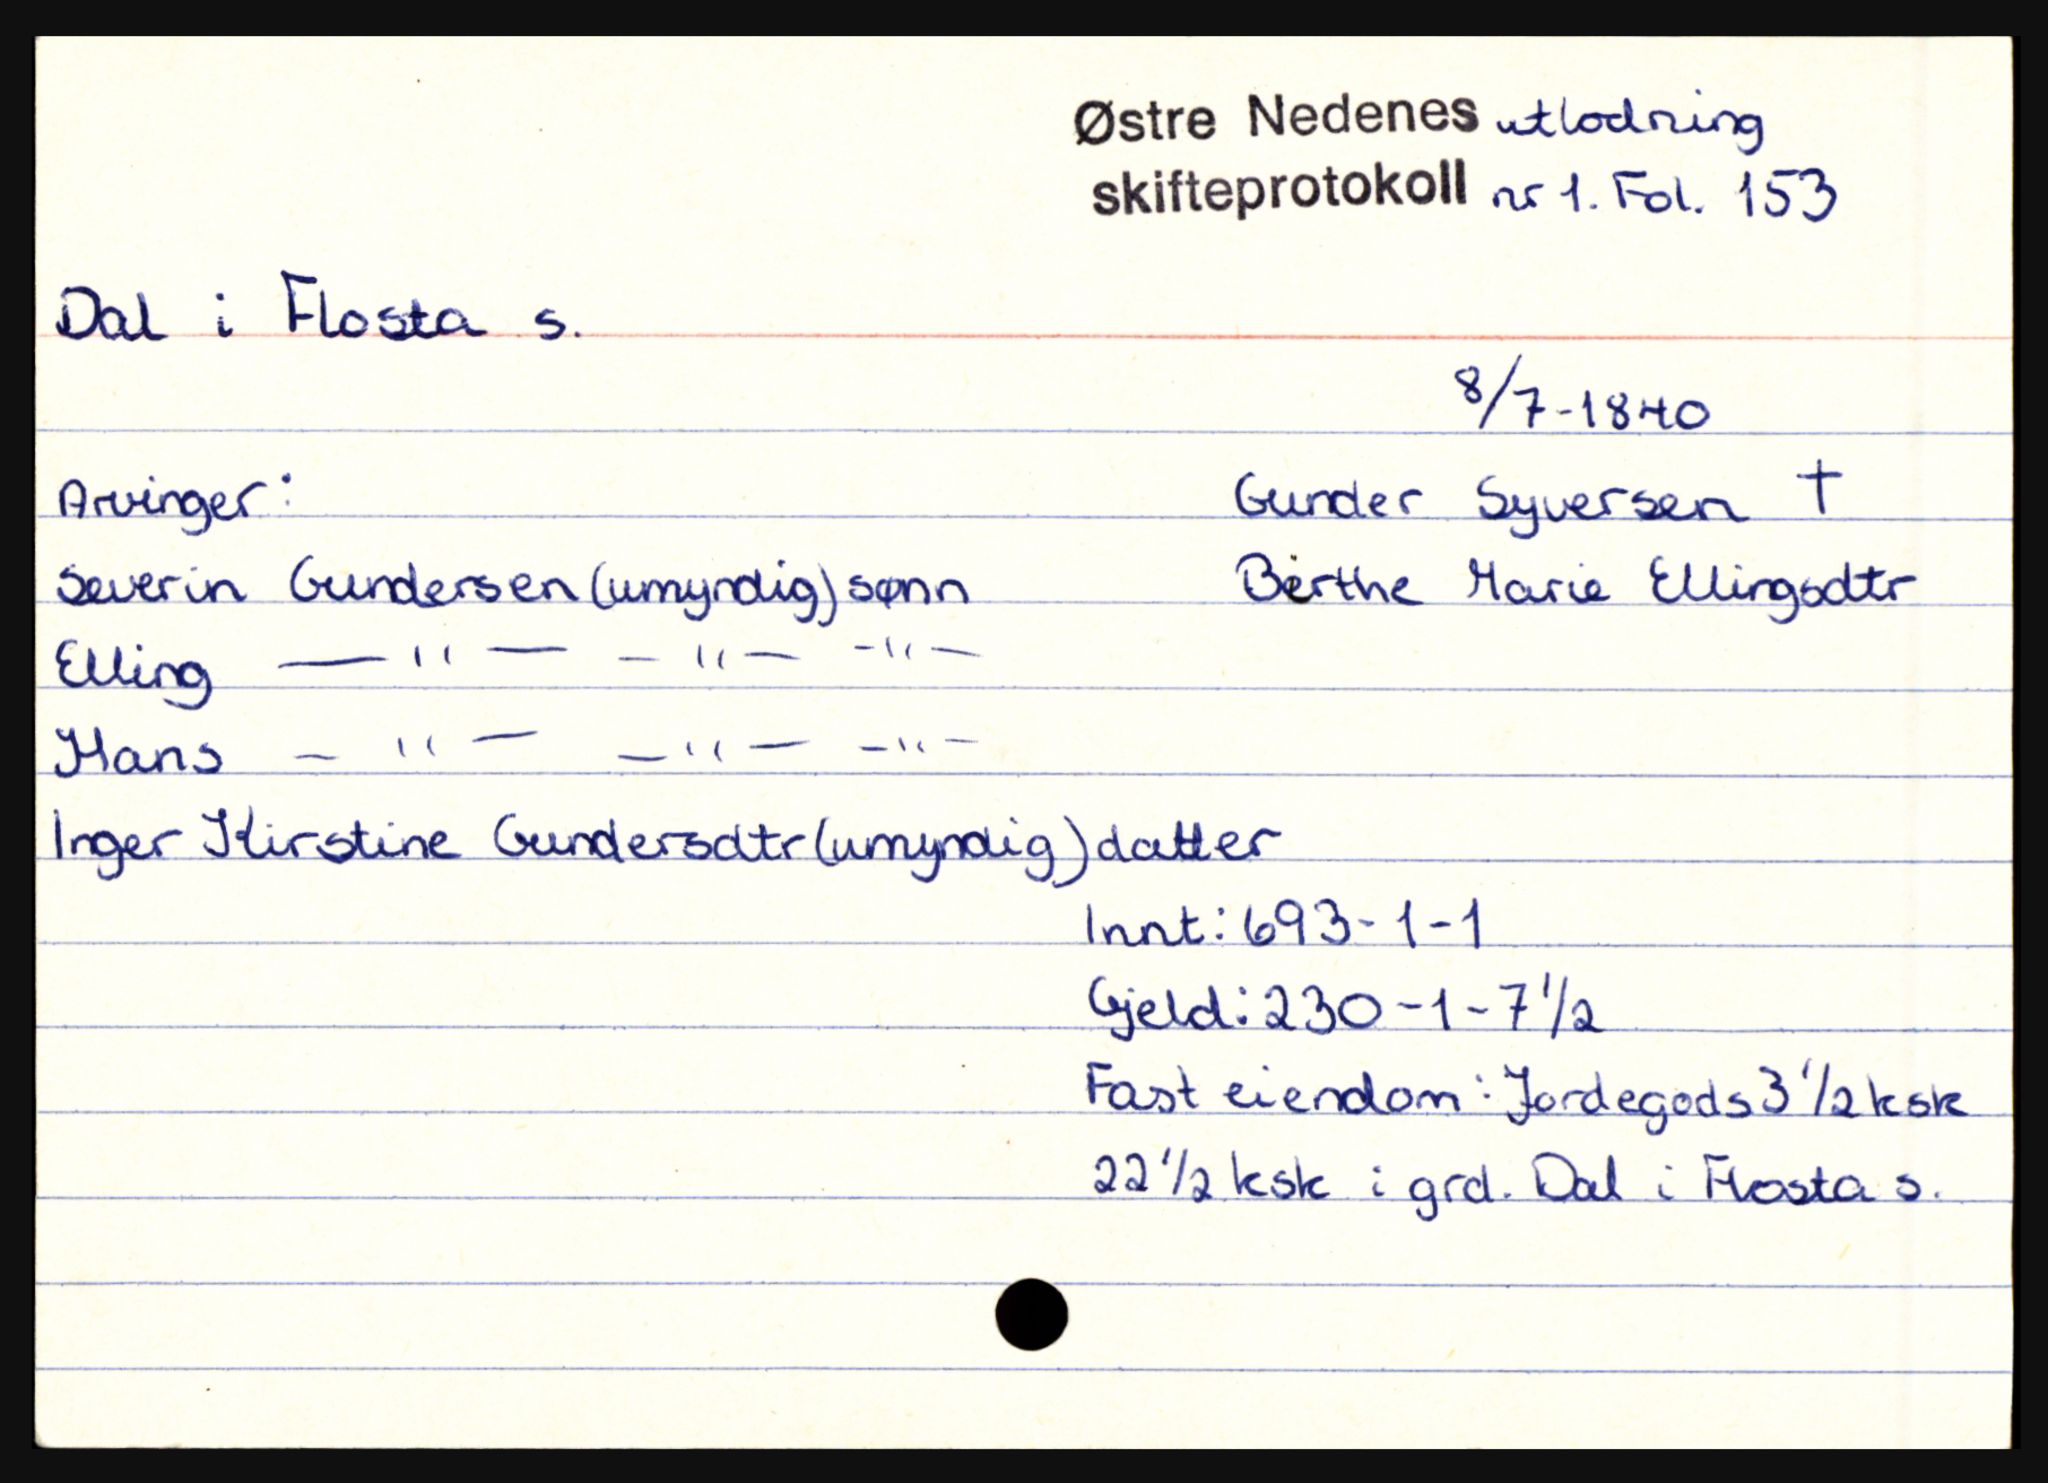 Østre Nedenes utlodning
skifteprotokoll nr 1. Fol. 153
Dal i Flosta s.
8/7-1840
Arvinger: Gunder Syversen †
Severin Gundersen (umyndig) sønn Berthe Marie Ellingsdtr
Elling — " — — " — - " -
Hans — " — — " — - " -
Inger Kirstine Gundersdtr (umyndig) datter
Innt: 693-1-1
Gjeld: 230-1-7 1/2
Fast eiendom: Jordegods 3 1/2 ksk
22 1/2 ksk i grd. Dal i Flosta s.